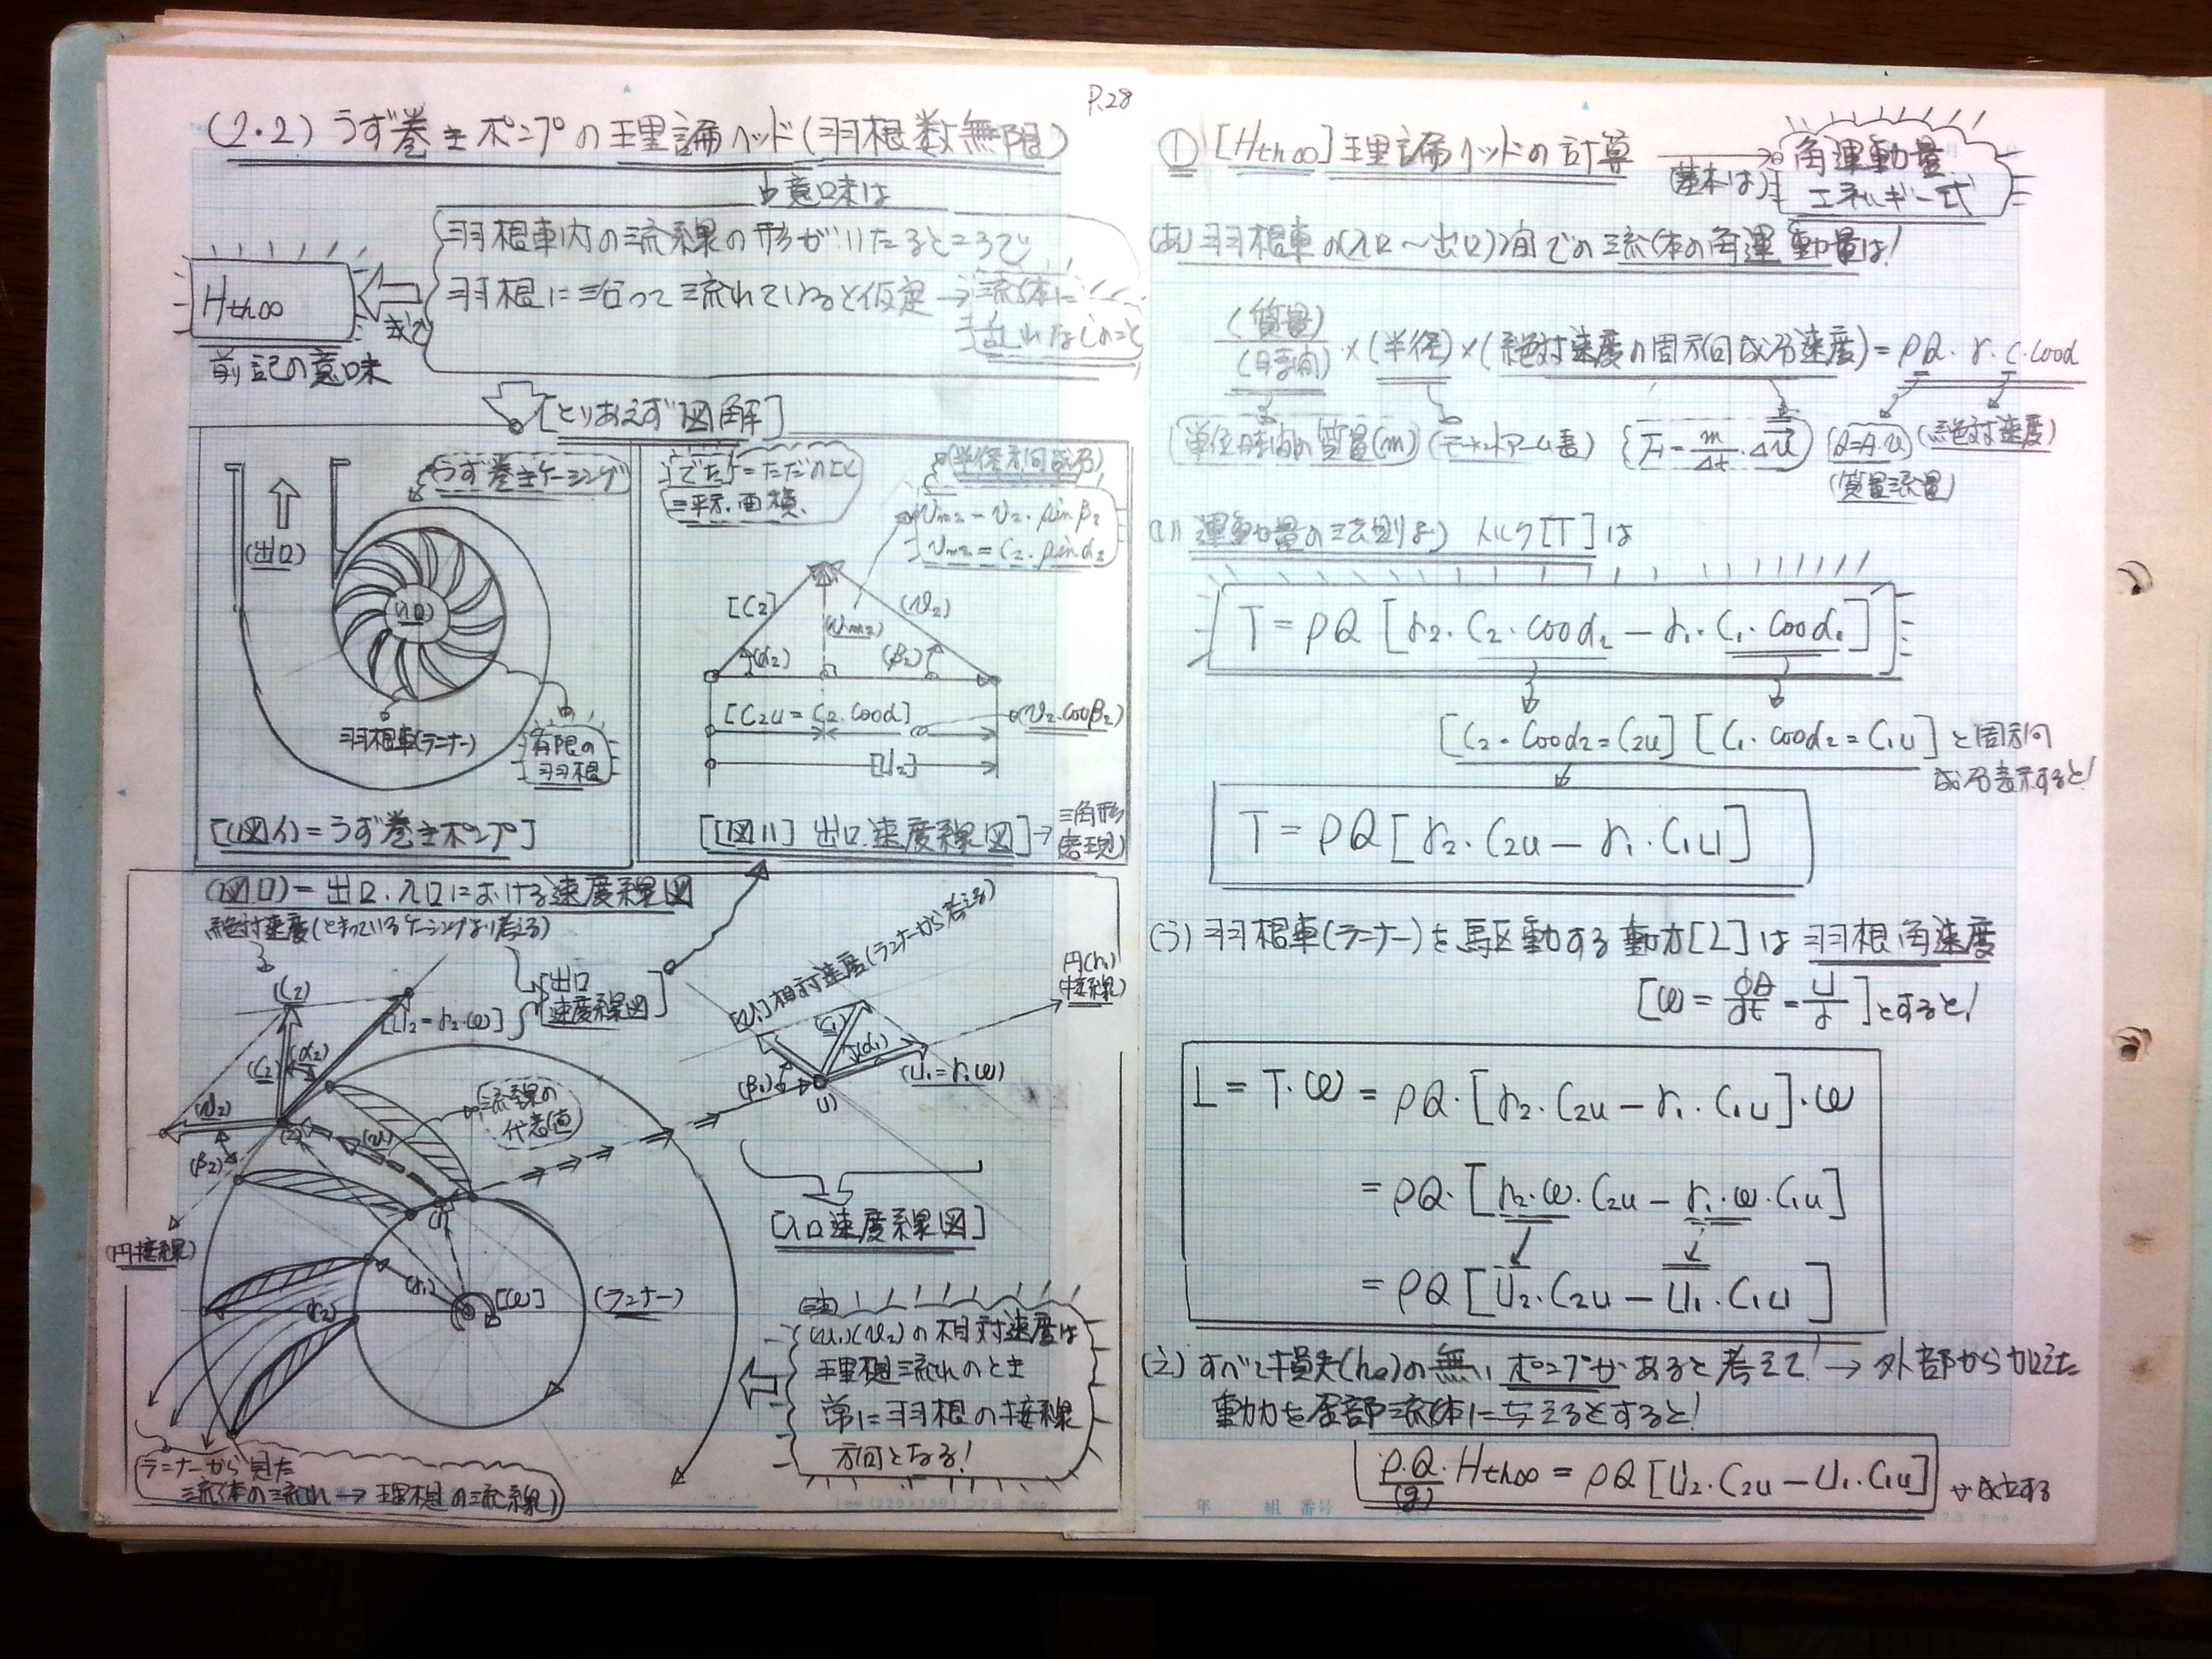 P.28
(2.2) うず巻きポンプの理論ヘッド(羽根数無限)
意味は
羽根車内の流線の形がいたるところで
羽根に沿って流れていると仮定→流体に
乱れなしのこと
Hth∞
前記の意味
[とりあえず図解]
うず巻きケーシング
(出口)
(入口)
羽根車(ランナー)
有限の
羽根
[(図イ)=うず巻きポンプ]
(半径方向成分)
Vm2 = V2・sinβ2
Vm2 = C2・sinα2
[C2]
(V2)
(Vm2)
(α2)
(β2)
[C2u = C2・cosα]
(V2・cosβ2)
[U2]
[[図ハ] 出口速度線図]→三角形
表現)
(図ロ)=出口、入口における速度線図
絶対速度(とまっているケーシングより考える)
(C2)
[U2=r2・ω]
出口
速度線図
(C2)
(α2)
(V2)
(β2)
(円接線)
流線の
代表値
[V1]相対速度(ランナーから考える)
円(r1)
(接線)
(C1)
(α1)
(β1)
(U1=r1ω)
[入口速度線図]
(r1)
(r2)
[ω]
(ランナー)
(注)
(V1)(V2)の相対速度は
理想流れのとき
常に羽根の接線
方向となる!
ランナーから見た
流体の流れ→理想の流線)
① [Hth∞]理論ヘッドの計算
(基本は)
角運動量
エネルギー式
(あ) 羽根車の(入口〜出口)間での流体の角運動量は!
(質量)/(時間)・×(半径)×(絶対速度の周方向成分速度)=ρQ・r・C・cosα
(単位時間の質量(m) (モーメントアーム長) {F=m/Δt・Δu} (Q=A・v) (絶対速度)
(質量流量)
(い) 運動量の法則より トルク[T]は
T=ρQ[r2・C2・cosα2−r1・C1・cosα1]
[C2・cosα2=C2u] [C1・cosα2=C1u]と周方向
成分表示すると!
T=ρQ[r2・C2u−r1・C1u]
(う) 羽根車(ランナー)を駆動する動力[L]は羽根角速度
[ω=dθ/dt=U/r]とすると!
L=T・ω=ρQ・[r2・C2u−r1・C1u]・ω
=ρQ・[r2・ω・C2u−r1・ω・C1u]
=ρQ[U2・C2u−U1・C1u]
(え) すべて損失の無いポンプがあると考えて!→外部から加えた
動力を全部流体に与えるとすると!
ρ・Q・Hth∞=ρQ[U2・C2u−U1・C1u]
(g)
が成立する
年 組 番号